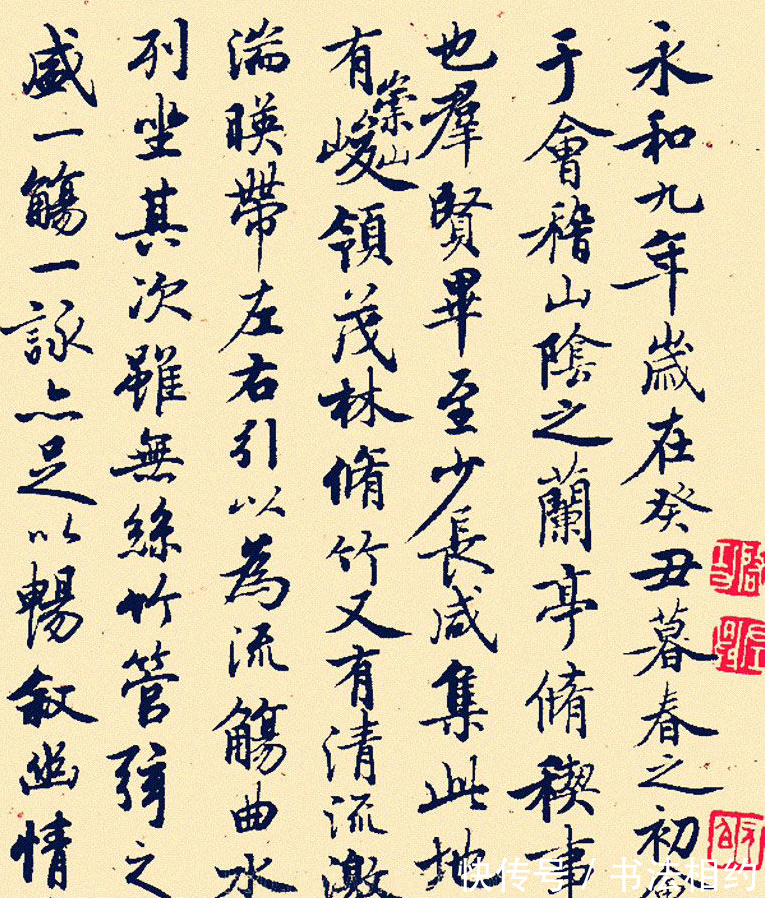 永和九年歲在癸丑暮春之初
于會稽山陰之蘭亭脩稧事
也羣賢畢至少長咸集此地
有崇山峻領茂林脩竹又有清流激
湍暎帶左右引以為流觴曲水
列坐其次雖無絲竹管弦之
盛一觴一詠亦足以暢敘幽情
快传号/书法相约